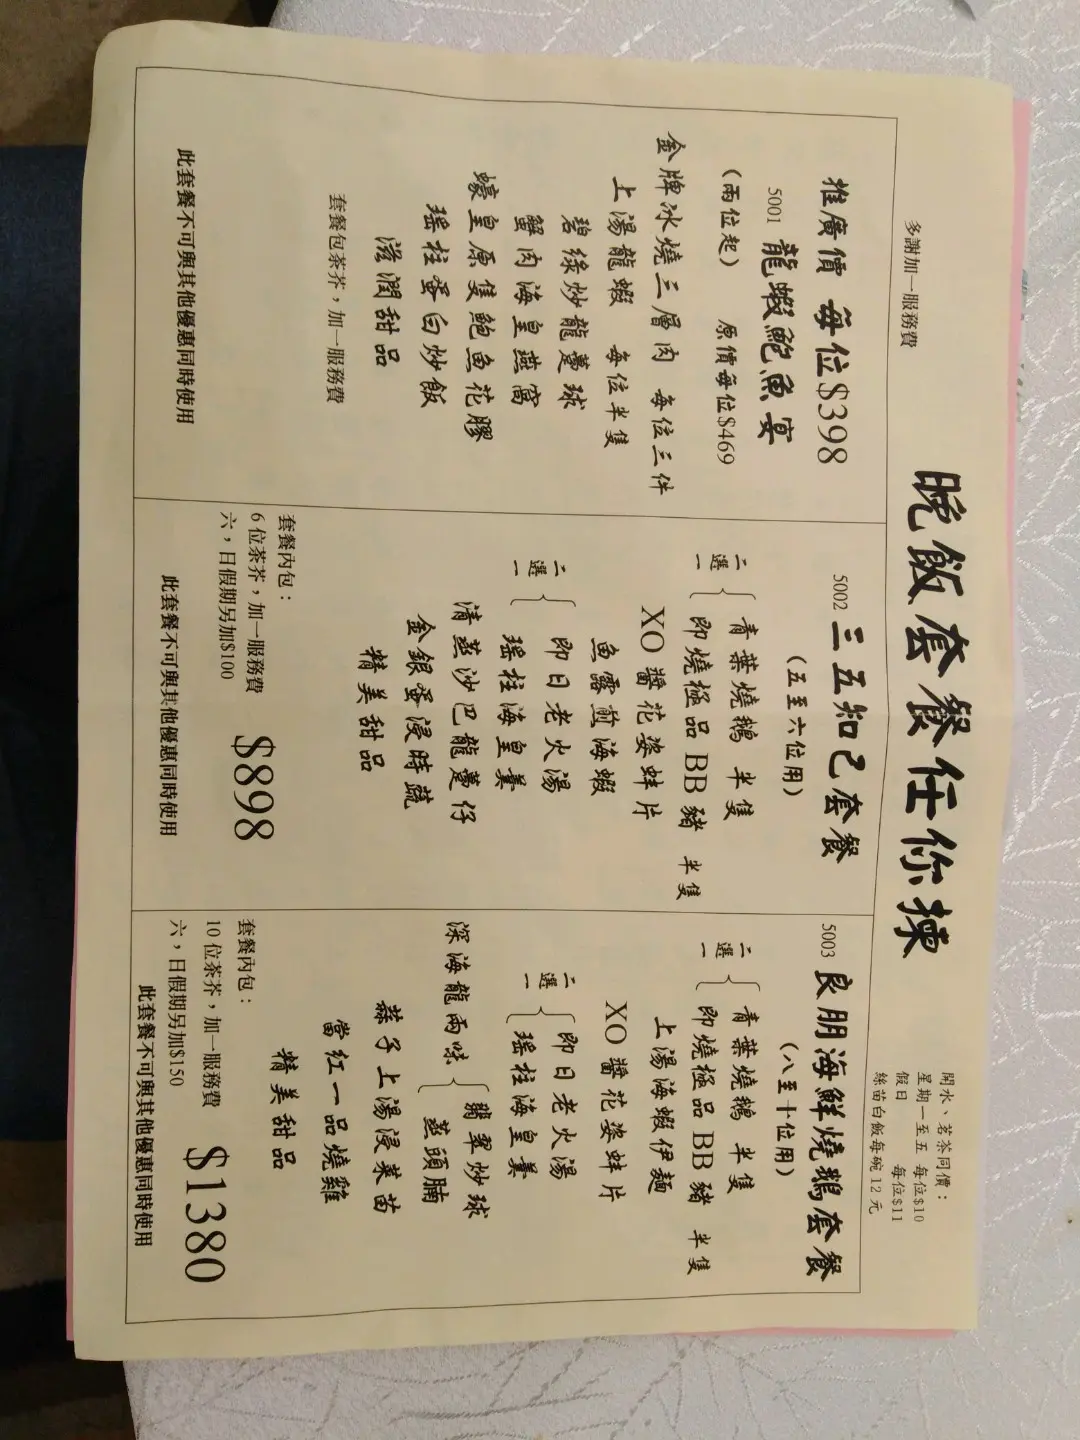 多謝加一服務費
晚飯套餐任你揀
開水、茗茶同價：
星期一至五 每位$10
假日 每位$11
絲苗白飯每碗 12 元
推廣價 每位$398
5001 龍蝦鮑魚宴
(兩位起) 原價每位$469
金牌冰燒三層肉 每位三件
上湯龍蝦 每位半隻
碧綠炒龍躉球
蟹肉海皇燕窩
蠔皇原隻鮑魚花膠
瑤柱蛋白炒飯
滋潤甜品
套餐包茶芥，加一服務費
此套餐不可與其他優惠同時使用
5002 三五知己套餐
(五至六位用)
二選一
青葉燒鵝 半隻
即燒極品 BB 豬 半隻
XO 醬花姿蚌片
魚露煎海蝦
二選一
即日老火湯
瑤柱海皇羹
清蒸沙巴龍躉仔
金銀蛋浸時蔬
精美甜品
套餐內包：
6 位茶芥，加一服務費
六，日假期另加$100
$898
此套餐不可與其他優惠同時使用
5003 良朋海鮮燒鵝套餐
(八至十位用)
二選一
青葉燒鵝 半隻
即燒極品 BB 豬 半隻
上湯海蝦伊麵
XO 醬花姿蚌片
二選一
即日老火湯
瑤柱海皇羹
深海龍兩味
翡翠炒球
蒸頭腩
蒜子上湯浸菜苗
當紅一品燒雞
精美甜品
套餐內包：
10 位茶芥，加一服務費
六，日假期另加$150
$1380
此套餐不可與其他優惠同時使用